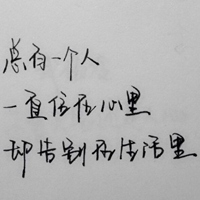 总有一个人
一直住在心里
却告别在生活里